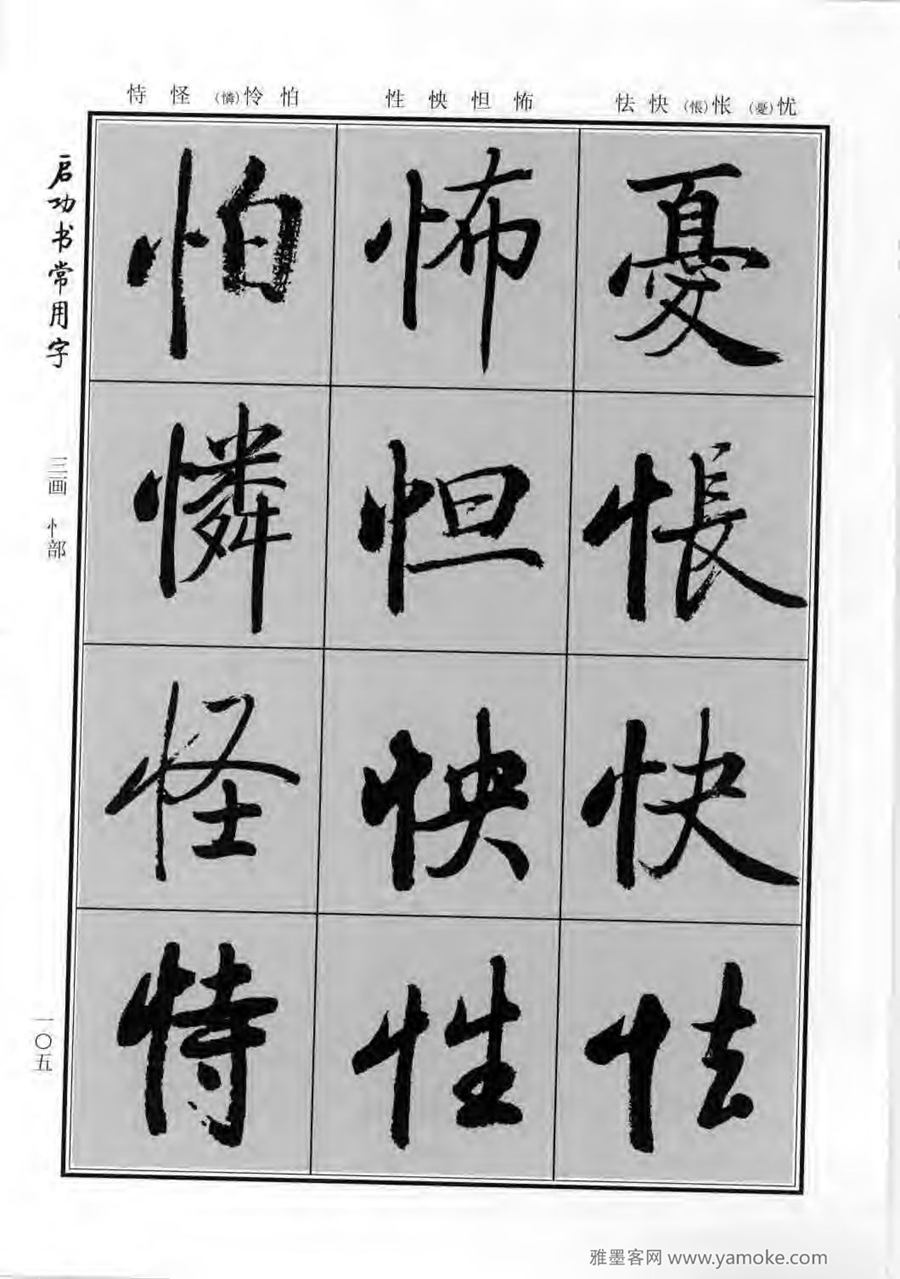 忧(憂)怅(悵)快怯 怖怛怏性 怕怜(憐)怪恃
憂悵快怯
怖怛怏性
怕憐怪恃
启功书常用字
三画 忄部
一〇五
雅墨客网 www.yamoke.com